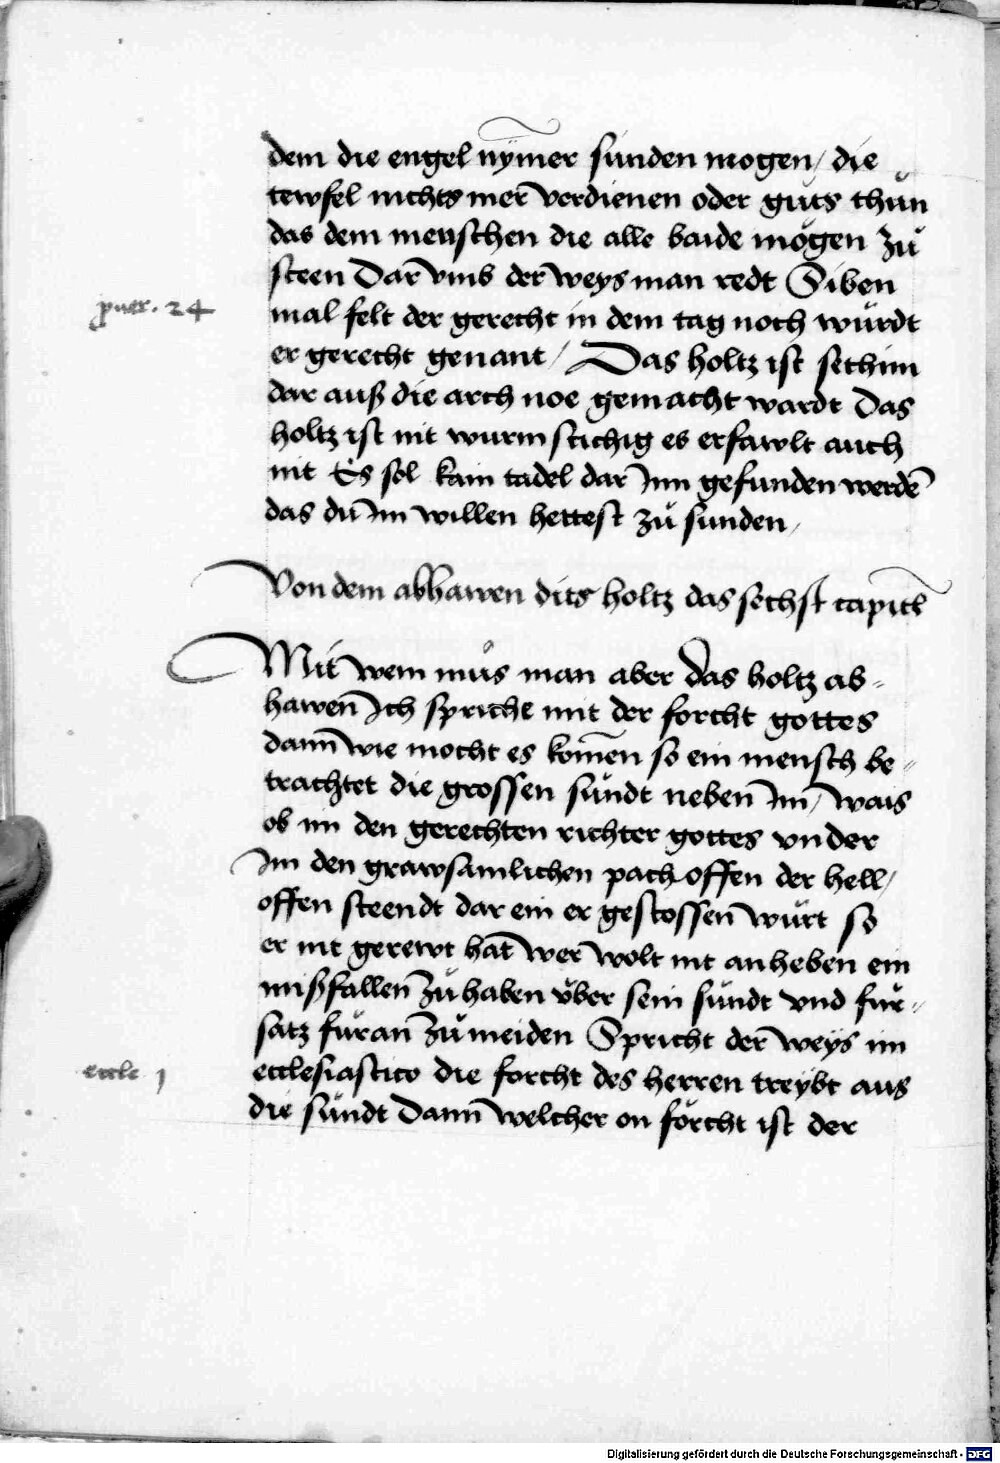 dem die engel nÿm̄er sunden mogen / die
tewfel nichts mer verdienen oder guts thůn
das dem menschen die alle baide mögen zů
steen Dar vmb der weys man redt Siben
pruer. 24
mal felt der gerecht in dem tag noch wurdt
er gerecht genant / Das holtz ist sethim
dar auß die arch noe gemacht wardt Das
holtz ist nit wurm stichig es erfawlt auch
nit Es sol kain tadel dar Inn gefunden werdē
das du Im willen hettest zů sunden /
Von dem abhawen dits holtz das sechst capitl
Mit wem můs man aber das holtz ab-
hawen Ich sprich mit der forcht gottes
dann wie mocht es kom̄en so ein mensch be-
trachtet die grossen sündt neben Im / wais
ob im den gerechten richter gottes vnder
Im den grawsamlichen pach offen der hell /
offen steendt dar ein er gestossen würt so
er nit gerewt hat wer wolt nit anheben ein
mißfallen zů haben über sein sündt vnd für-
satz füran zů meiden Spricht der weÿs im
eccle 1
ecclesiastico die forcht des herren treÿbt aus
die sündt Dann welcher on förcht ist der
Digitalisierung gefördert durch die Deutsche Forschungsgemeinschaft - DFG